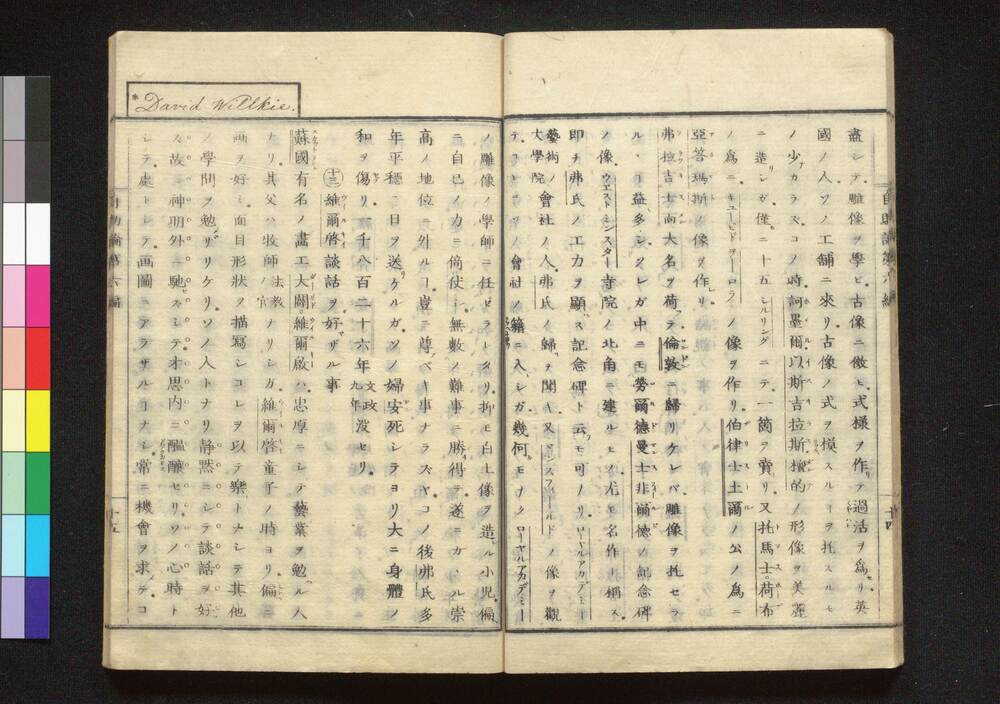 盡シテ雕像ヲ學ビ古像ニ倣ヒ式樣ヲ作テ過活ヲ爲リ英
國ノ人ソノ工舖ニ來リ古像ノ式ヲ模スルヿヲ托スルモ
ノ少カラズコノ時訶墨爾以斯吉拉斯檀的ノ形像ヲ美麗
ニ造シガ僅ニ十五シルリングニテ一箇ヲ賣リ又托馬士荷布
ノ爲ニキューピドヲーロラノ像ヲ作リ伯律士土爾ノ公ノ爲ニ
亞答瑪斯ノ像ヲ作リ
弗拉吉士曼大名ヲ荷テ倫敦ニ歸リケレバ雕像ヲ托セラ
ルヽヿ益多シソレガ中ニモ勞爾德曼士非爾德ノ記念碑
ノ像ウエストミンスター寺院ノ北角ニ建ルモノ尤モ名作ト稱ス
即チ弗氏ノ工力ヲ顯ス記念碑ト云モ可ナリローヤルアカデミー
藝術ノ大學院會社ノ人弗氏ノ歸ヲ聞キ又マンスフィールドノ像ヲ觀
テコレヲ會社ノ籍ニ入シガ幾何モナクローヤルアカデミー
ノ雕像ノ學師ニ任ゼラレタリ抑モ白土像ヲ造ル小兒偏
ニ自己ノ力ニ倚仗シ無數ノ難事ニ勝得テ遂ニカヽル崇
高ノ地位ニ升ルヿ豈ニ尊ベキ事ナラズヤコノ後弗氏多
年平穩ニ日ヲ送ケルガソノ婦安死シテヨリ大ニ身體ノ
和ヲ傷リ千八百二十六年文政九年沒セリ
十三 維爾啓談話ヲ好マザル事
David Willkie.
蘇國有名ノ畫工大闢維爾啟ハ忠厚ニシテ藝業ヲ勉ル人
ナリ其父ハ牧師法教ノ官ナリシガ維爾啓童子ノ時ヨリ偏ニ
畫ヲ好ミ面目形狀ヲ描寫シコレヲ以テ樂トナシテ其他
ノ學問ヲ勉ザリケリソノ人トナリ靜黙ニシテ談話ヲ好
ズ故ニ神明外ニ馳ズシテ才思内ニ醞釀セリソノ心時ト
シテ處トシテ画圖ニアラザルヿナシ常ニ機會ヲ求テコ
自助論第六編
十五
十四